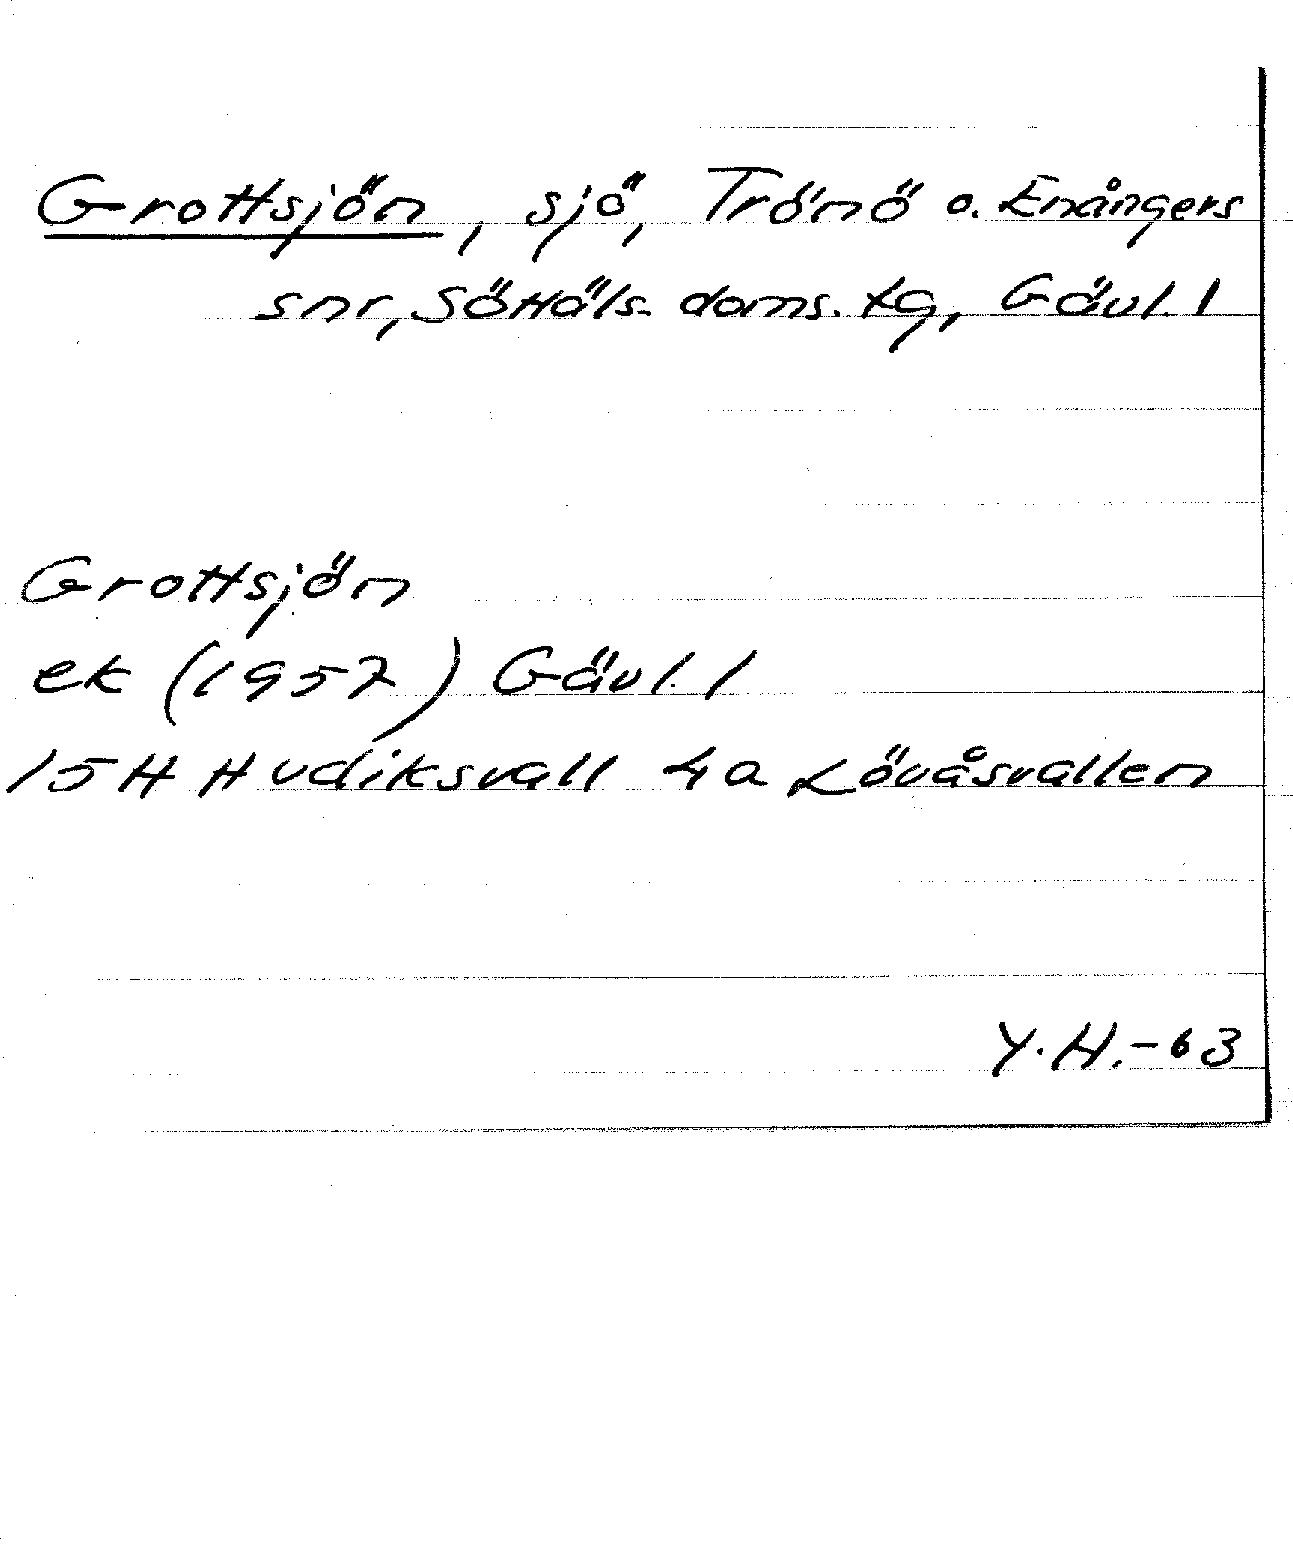 Grottsjön, sjö, Trönö o. Enångers
snr, Söhäls. doms. tg, Gävl. l
Grottsjön
ek (1957) Gävl. l
15H Hudiksvall 4a Lövåsvallen
Y.H.-63